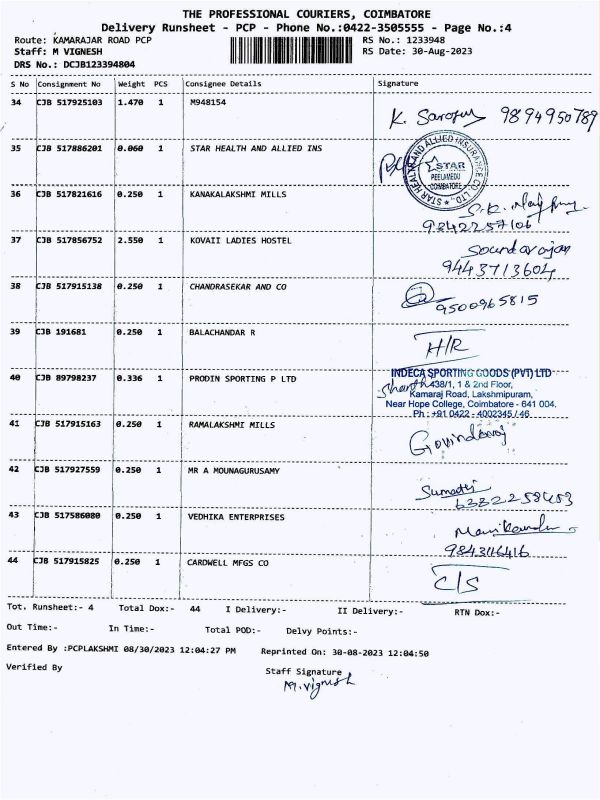 THE PROFESSIONAL COURIERS, COIMBATORE
Delivery Runsheet - PCP - Phone No.:0422-3505555 - Page No.:4
Route: KAMARAJAR ROAD PCP RS No.: 1233948
Staff: M VIGNESH RS Date: 30-Aug-2023
DRS No.: DCJB123394804
S No Consignment No Weight PCS Consignee Details Signature
34 CJB 517925103 1.470 1 M948154
K. Saroja 9894950789
35 CJB 517886201 0.060 1 STAR HEALTH AND ALLIED INS
STAR HEALTH AND ALLIED INSURANCE CO. LTD.
STAR
PEELAMEDU
COIMBATORE
36 CJB 517821616 0.250 1 KANAKALAKSHMI MILLS
9842257106
37 CJB 517856752 2.550 1 KOVAII LADIES HOSTEL
Soundarajan
9443713604
38 CJB 517915138 0.250 1 CHANDRASEKAR AND CO
9500965815
39 CJB 191681 0.250 1 BALACHANDAR R
H/R
40 CJB 89798237 0.336 1 PRODIN SPORTING P LTD
INDECA SPORTING GOODS (PVT) LTD
438/1, 1 & 2nd Floor,
Kamaraj Road, Lakshmipuram,
Near Hope College, Coimbatore - 641 004.
Ph : +91 0422 - 4002345 / 46
41 CJB 517915163 0.250 1 RAMALAKSHMI MILLS
Govindaraj
42 CJB 517927559 0.250 1 MR A MOUNAGURUSAMY
Sumathi
6382258453
43 CJB 517586080 0.250 1 VEDHIKA ENTERPRISES
Manikandan
9843116416
44 CJB 517915825 0.250 1 CARDWELL MFGS CO
C/S
Tot. Runsheet:- 4 Total Dox:- 44 I Delivery:- II Delivery:- RTN Dox:-
Out Time:- In Time:- Total POD:- Delvy Points:-
Entered By :PCPLAKSHMI 08/30/2023 12:04:27 PM Reprinted On: 30-08-2023 12:04:50
Verified By Staff Signature
M.Vignesh